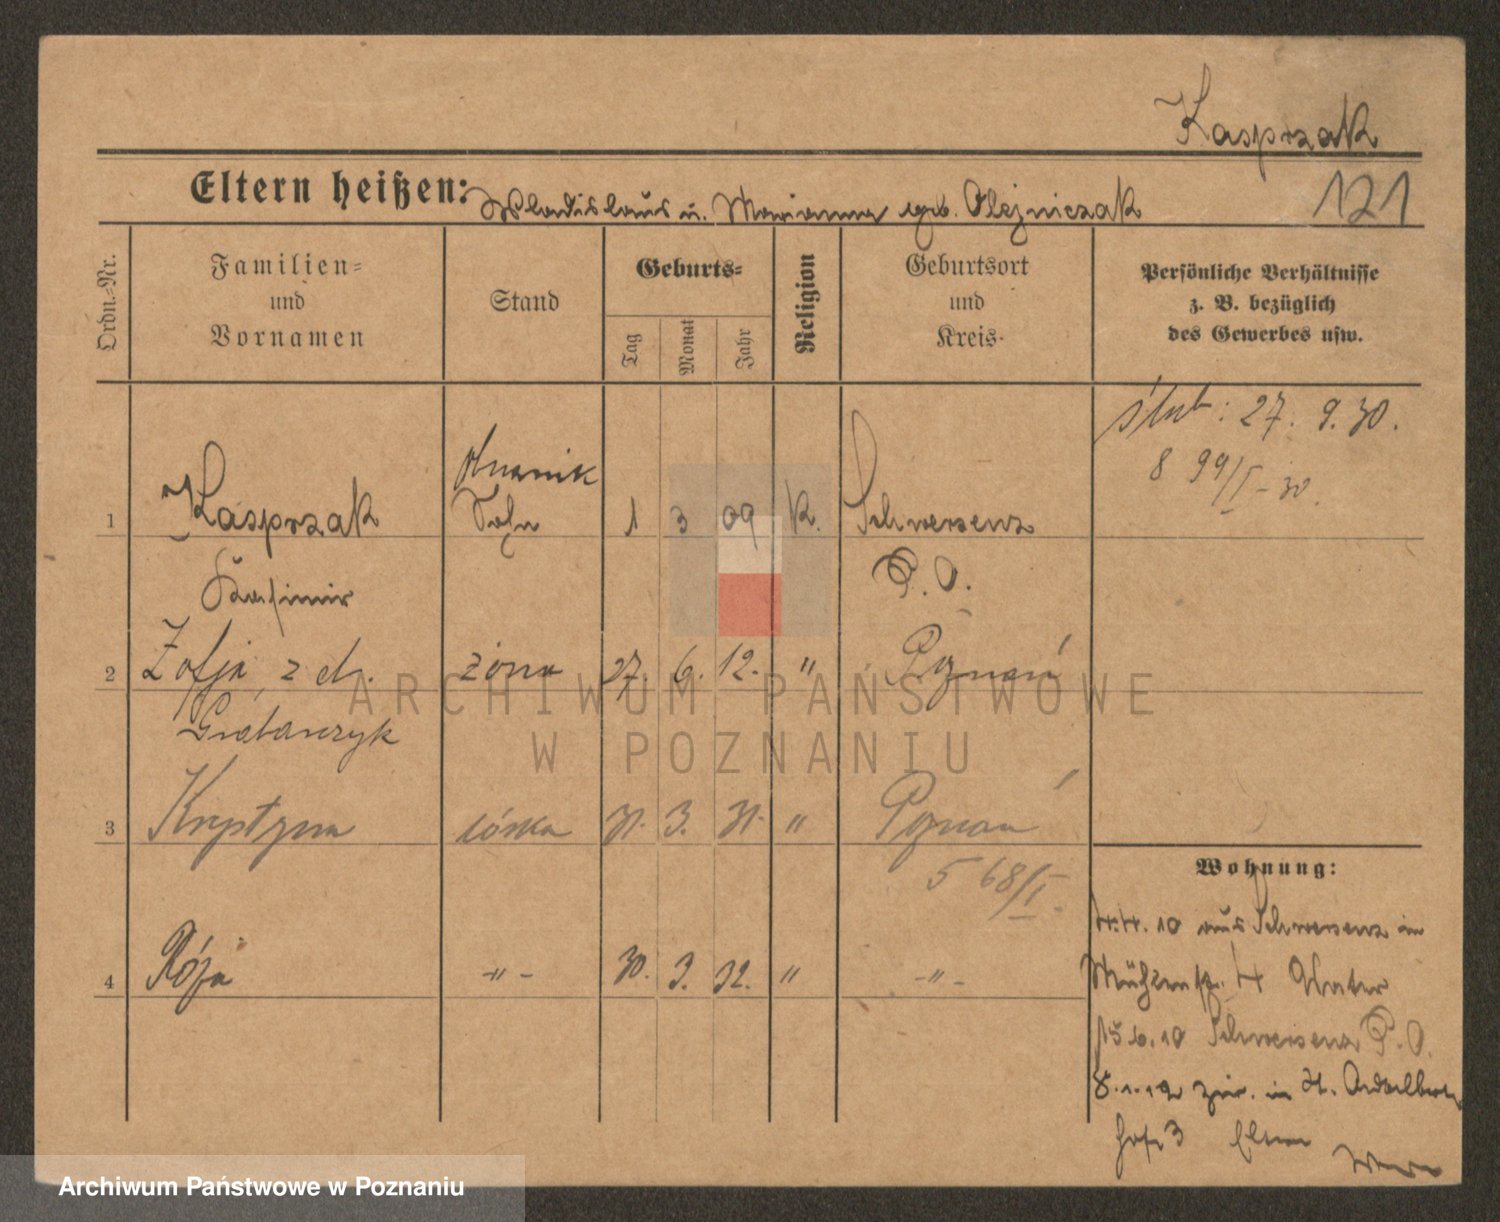 Kasprzak
Eltern heißen: Wladislaus u. Marianna geb. Olejniczak
121
Ordn.-Nr.
Familien-
und
Vornamen
Stand
Geburts-
Tag
Monat
Jahr
Religion
Geburtsort
und
Kreis
Persönliche Verhältnisse
z. B. bezüglich
des Gewerbes usw.
ślub: 27. 9. 30.
8 99/I - 30.
1 Kasprzak Sohn 1 3 09 K. Schwersenz
Kasimir P. O.
2 Zofja z d. żona 27. 6. 12. " Poznań
Grabarczyk
3 Krystyna córka 31. 3. 31. " Poznań
5 68/I
4 Róża -"- 30. 3. 32. " -"-
Wohnung:
4.4.10 aus Schwersenz in
Mühlenstr. 4 Vater
15.6.10 Schwersenz P. O.
8.1.12 zur. in St. Adalbert
3 Eltern
ARCHIWUM PAŃSTWOWE
W POZNANIU
Archiwum Państwowe w Poznaniu